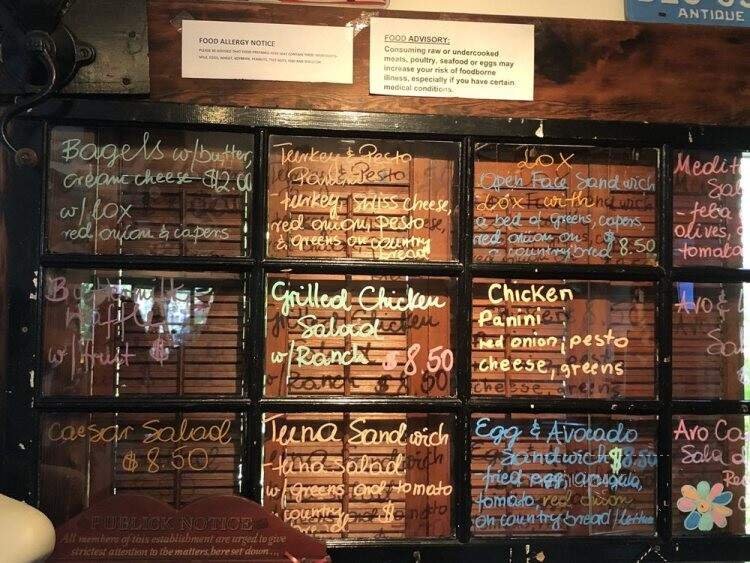 ANTIQUE
FOOD ALLERGY NOTICE
PLEASE BE ADVISED THAT FOOD PREPARED HERE MAY CONTAIN THESE INGREDIENTS:
MILK, EGGS, WHEAT, SOYBEAN, PEANUTS, TREE NUTS, FISH AND SHELLFISH
FOOD ADVISORY:
Consuming raw or undercooked
meats, poultry, seafood or eggs may
increase your risk of foodborne
illness, especially if you have certain
medical conditions.
Bagels w/butter,
cream cheese $2.00
w/lox
red onion & capers
Turkey & Pesto
Panini
-turkey, swiss cheese,
red onion, pesto
& greens on country
bread
LOX
Open Face Sandwich
Lox with
a bed of greens, capers,
red onion on
a country bread $8.50
Sal
- feta
olives,
tomato
w/ fruit $
Grilled Chicken
Salad
w/Ranch $8.50
Chicken
Panini
red onion, pesto
cheese, greens
Avo &
Caesar Salad
$8.50
Tuna Sandwich
-tuna salad
w/ greens and tomato
country $
Egg & Avocado
Sandwich $8.50
fried egg, arugula,
tomato, red onion
on country bread
Avo Ca
Sala
PUBLICK NOTICE
All members of this establishment are urged to give
strictest attention to the matters, here set down....